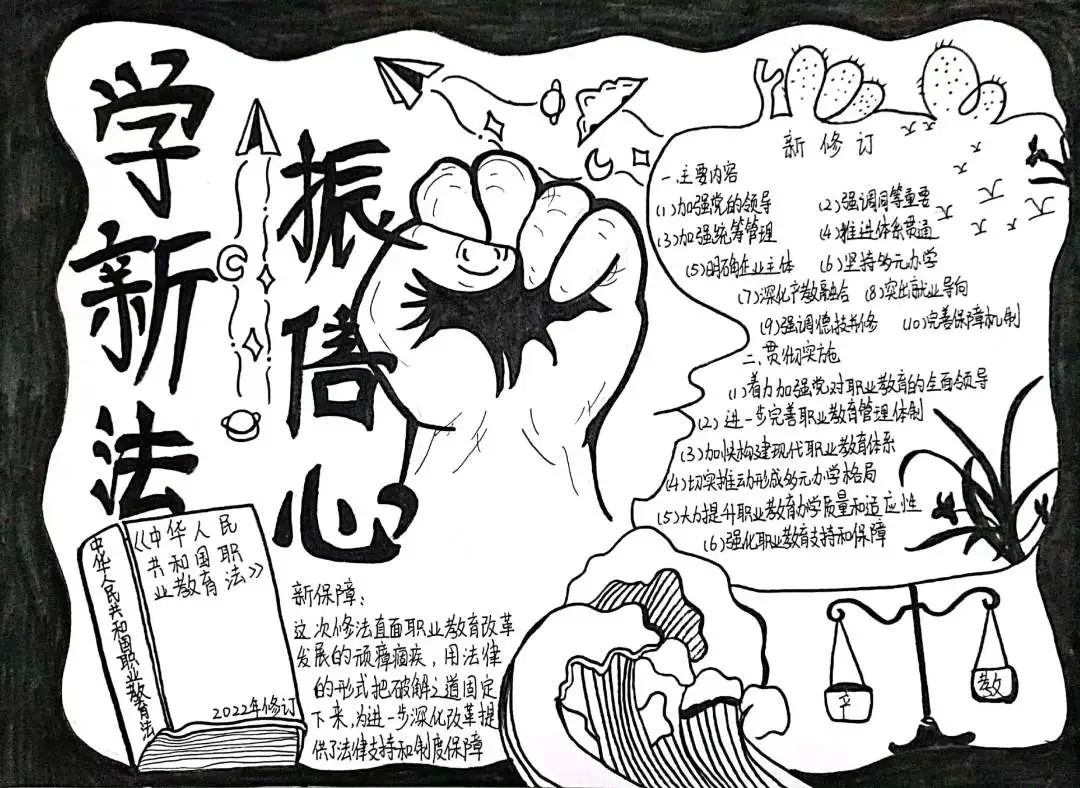 学新法
振信心
新修订
一.主要内容
(1)加强党的领导 (2)强调同等重要
(3)加强统筹管理 (4)推进体系贯通
(5)明确企业主体 (6)坚持多元办学
(7)深化产教融合 (8)突出就业导向
(9)强调德技并修 (10)完善保障机制
二、贯彻实施
(1)着力加强党对职业教育的全面领导
(2)进一步完善职业教育管理体制
(3)加快构建现代职业教育体系
(4)切实推动形成多元办学格局
(5)大力提升职业教育办学质量和适应性
(6)强化职业教育支持和保障
中华人民共和国职业教育法
《中华人民
共和国职
业教育法》
2022年修订
新保障：
这次修法直面职业教育改革
发展的顽瘴痼疾，用法律
的形式把破解之道固定
下来，为进一步深化改革提
供了法律支持和制度保障
教